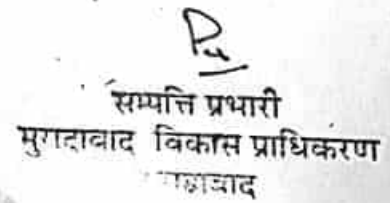 सम्पत्ति प्रभारी
मुरादाबाद विकास प्राधिकरण